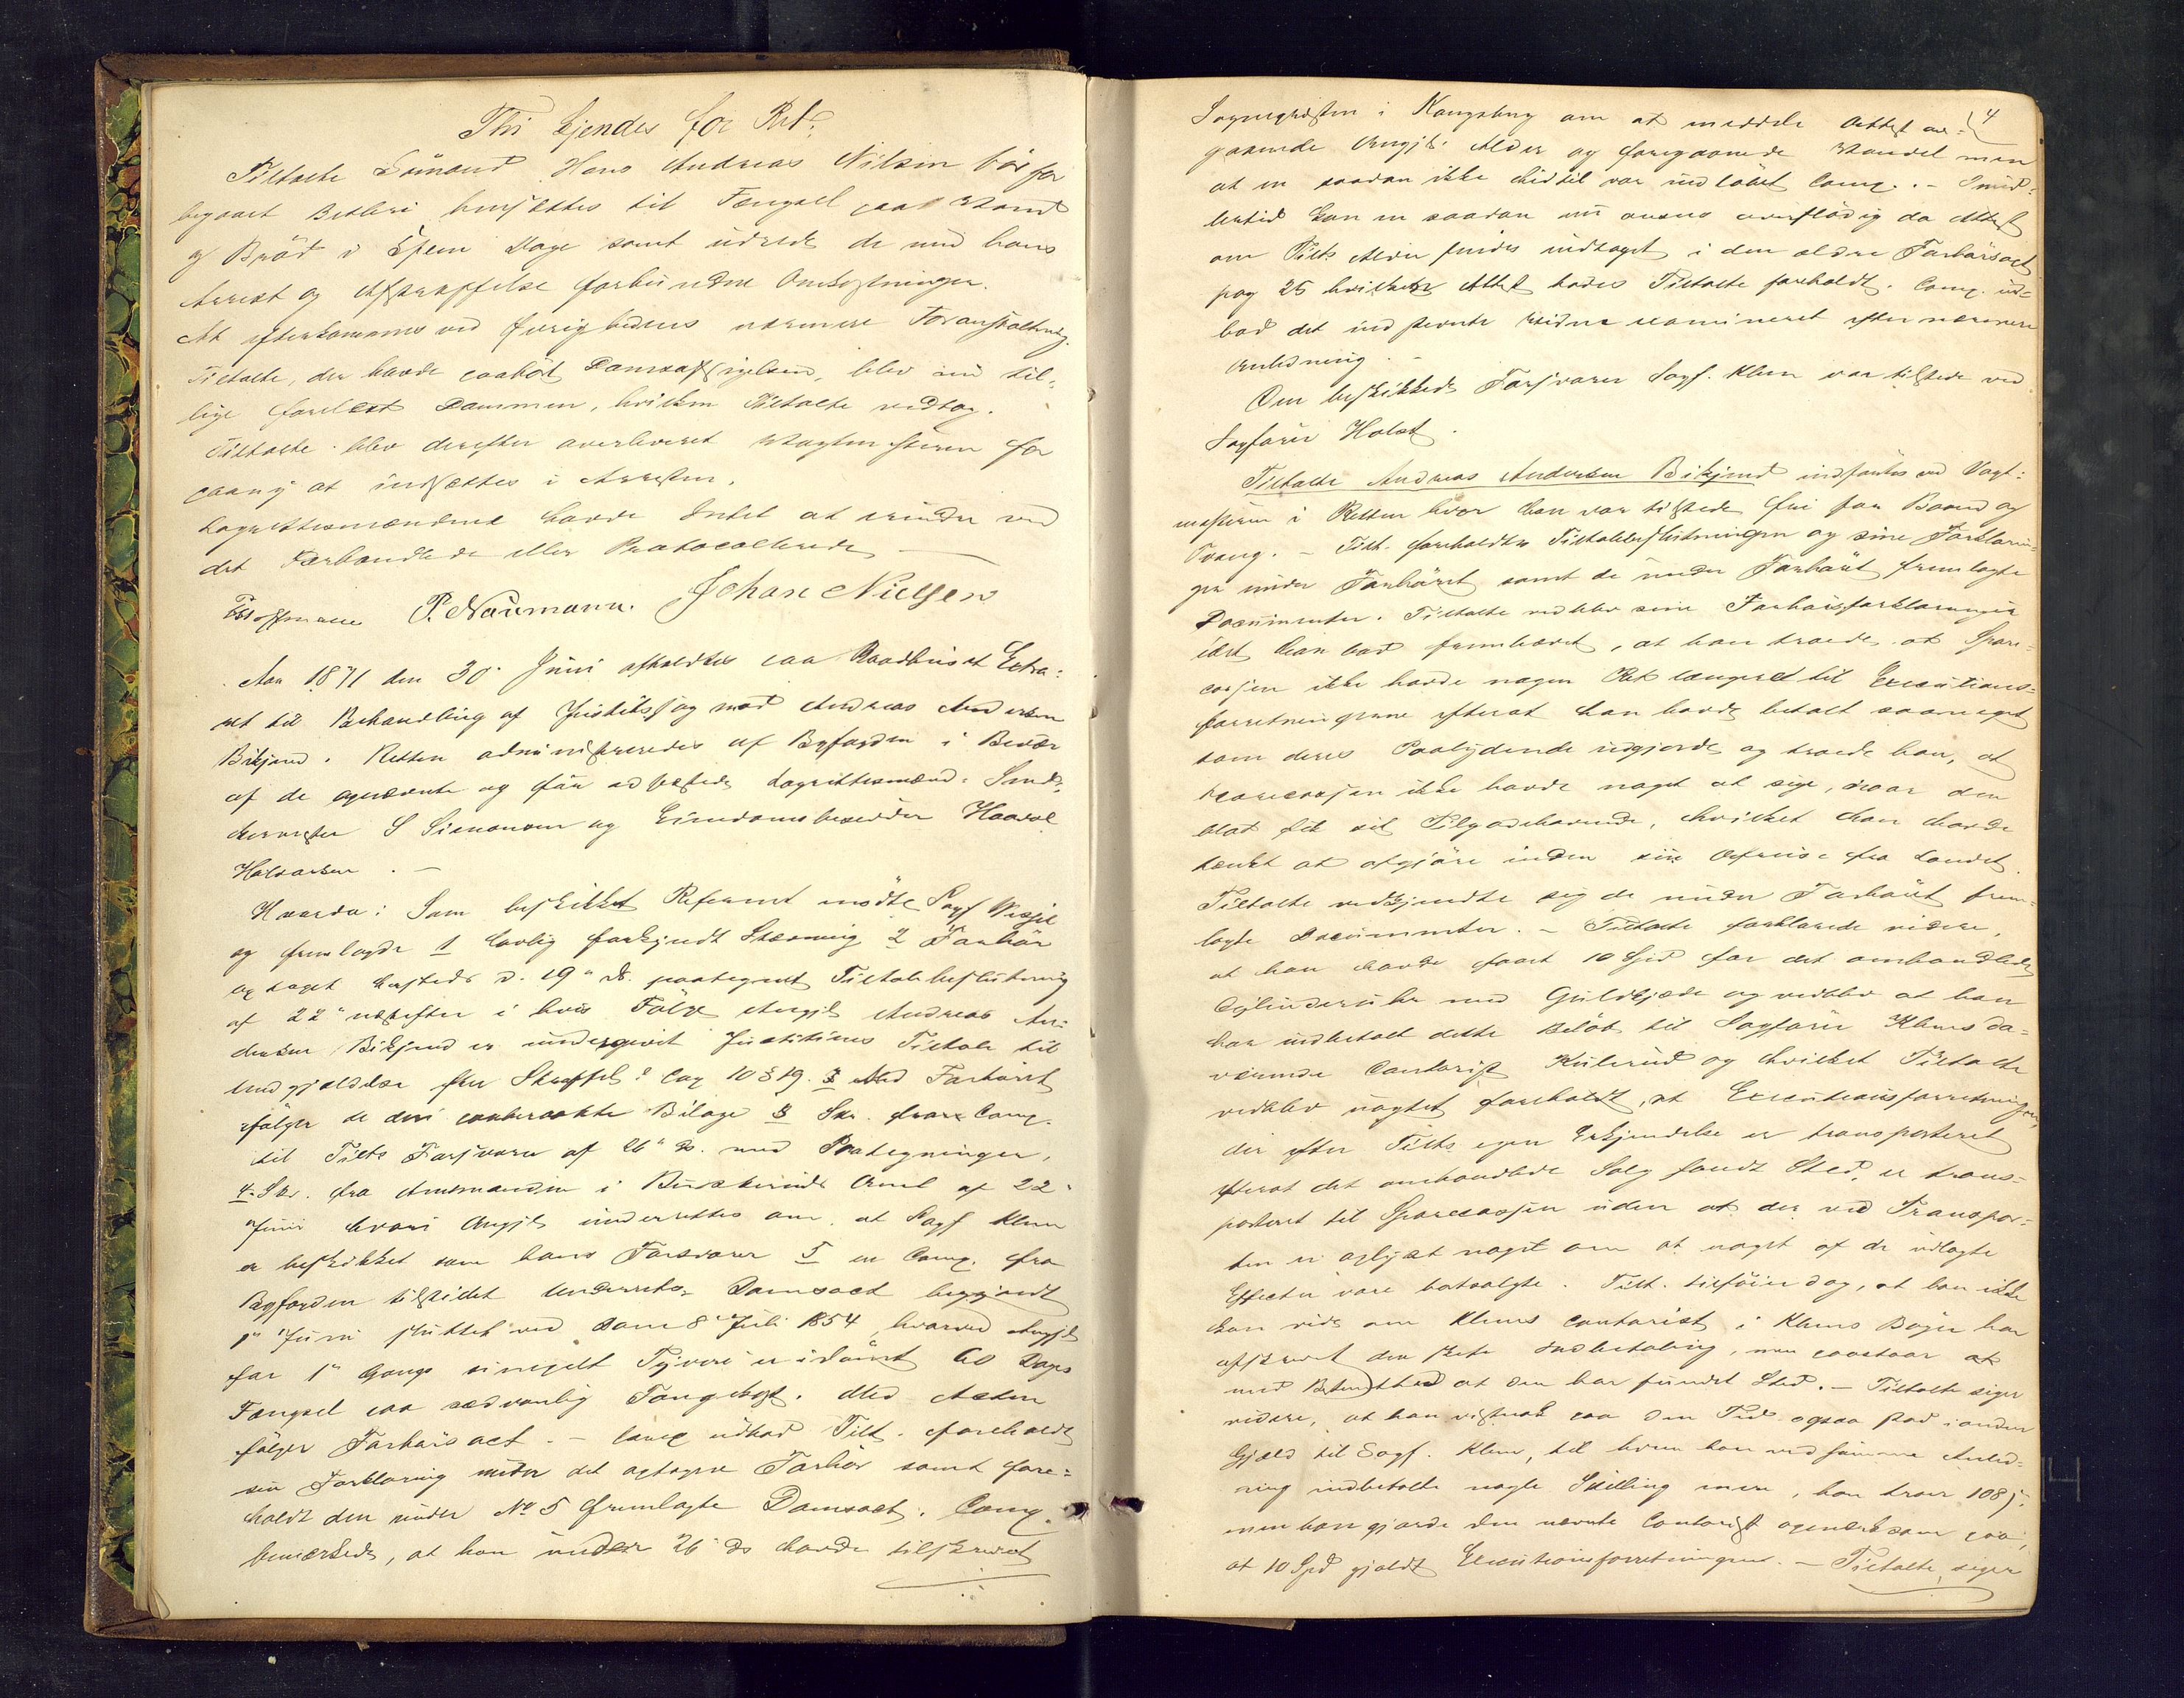 Thi kjendes for Ret:
Tiltalte Sömand Hans Andreas Nilsen bör for
begaaet Betleri hensættes til Fængsel paa Vand
og Bröd i Dage samt udrede de med hans
Arrest og Afstraffelse forbundne Omkostninger.
At efterkommes ved Övrighedens nærmere Foranstaltning.
Tiltalte, der havde paahört Domsafsigelsen, blev nu til-
lige forelæst Dommen, hvilken Tiltalte vedtog.
Tiltalte blev derefter overleveret Vagtmesteren for
paany at indsættes i Arresten.
Lagrettesmændene havde Intet at erindre ved
det Forhandlede eller Protocollerede
P. Naumann. Johan Nielsen
Aar 1871 den 30 Juni afholdtes paa Raadhuset Extra-
ret til Behandling af Justitssag mod Andreas Andersen
Bikjend. Retten administreredes af Byfogden i Bevær
af de opnævnte og för edfæstede Lagrettesmænd: Smed-
S Simonsen og Eiendomsbesidder Haavel
Halvorsen . –
Hvorda: Som beskikket Referent mödte Sagf
og fremlagde 1 Lovlig forkyndt Stævning 2 Forhör
optaget hersteds d. 19 ds. paategnet Tiltalebeslutning
af 22 næstefter i hvis Fölge Angjl Andreas An-
dersen Bikjend er undergivet Justitiens Tiltale til
Undgjældelse efter Straffel: Cap 10 § 19. 3 Med Forhöret
fölger de deri paaberaabte Bilage Skr. fra Comp.
til Tilts Forsvarer af 26 ds. med Paategninger,
4 Skr. fra Amtmanden i Buskeruds Amt af 22
Juni hvori Angjl underrettes om at Sagf Klem
er beskikket som hans Forsvarer 5 en Comp. fra
Byfogden tilstillet Underrets Domsact begyndt
1 Juni sluttet ved Dom 8 Juli 1854 hvorved Angjl
for 1ste Gangs simpelt Tyveri er idömt 60 Dages
Fængsel paa sædvanlig Fangekost. Med Acten
fölger Forhörsact. – Comp udbad Tilt. foreholdt
sin Forklaring under det optagne Forhör samt fore-
holdt den under No 5 fremlagte Domsact. Comp.
bemærkede, at han under 26 ds havde tilskrevet
4
Sognepresten i Kongsberg om at meddele Attest an-
gaaende Angjls Alder og foregaaende Vandel men
at en saadan ikke hidtil var indlöbet Comp. – Imid-
lertid kan en saadan nu ansees overflödig da Attest
om Tilts Alder findes indtaget i den ældre Forhörsact
pag 25 hvilken Attest bades Tiltalte foreholdt. Comp. ud-
bad det indstevnte Vidne examineret efter nærmere
Anledning. –
Den beskikkede Forsvarer Sagf. Klem var tilstede ved
Sagförer Holst.
Tiltalte Andreas Andersen Bikjend indförtes ved Vagt-
mesteren i Retten hvor han var tilstede fri for Baand og
Tvang. – Tilt. foreholdtes Tiltalebeslutningen og sine Forklarin-
ger under Forhöret samt de under Forhöret fremlagte
Documenter. Tiltalte vedblev sine Forhörsforklaringer
idet han bad fremhævet, at han troede, at Spare-
cassen ikke havde nogen Ret længere til Executions-
forretningerne efterat han havde betalt saameget
som deres Paalydende udgjorde og troede han, at
Sparecassen ikke havde noget at sige, naar den
blot fik sit Tilgodehavende, hvilket han havde
tænkt at afgjöre inden sin Afreise fra Landet.
Tiltalte vedkjendte sig de under Forhöret frem-
lagte Documenter. – Tiltalte forklarede videre,
at han havde faaet 10 Spd for det omhandlede
Cylinderuhr med Guldkjæde og vedblev at han
har indbetalt dette Belöb til Sagförer Klems da-
værende Contorist Kulerud og hvilket Tiltalte
vedblev uagtet foreholdt, at Executionsforretningen,
der efter Tilts egen Erkjendelse er transporteret
efterat det omhandlede Salg fandt Sted, er trans-
porteret til Sparecassen uden at der ved Transpor-
ten er oplyst noget om at noget af de udlagte
Effecter vare bortsolgte. Tilt. tilföier dog, at han ikke
kan vide om Klems Contorist i Klems Böger har
afskrevet den skete Indbetaling, men paastaar
med Bestemthed at den har fundet Sted. – Tiltalte siger
videre, at han vistnok paa den Tid ogsaa stod i anden
Gjæld til Sagf. Klem, til hvem han ved samme Anled-
ning indbetalte nogle Skilling mere, han troer 108 s;
men han gjorde den nævnte Contorist opmærksom paa,
at 10 Spd gjaldt Executionsforretningerne. – Tiltalte siger